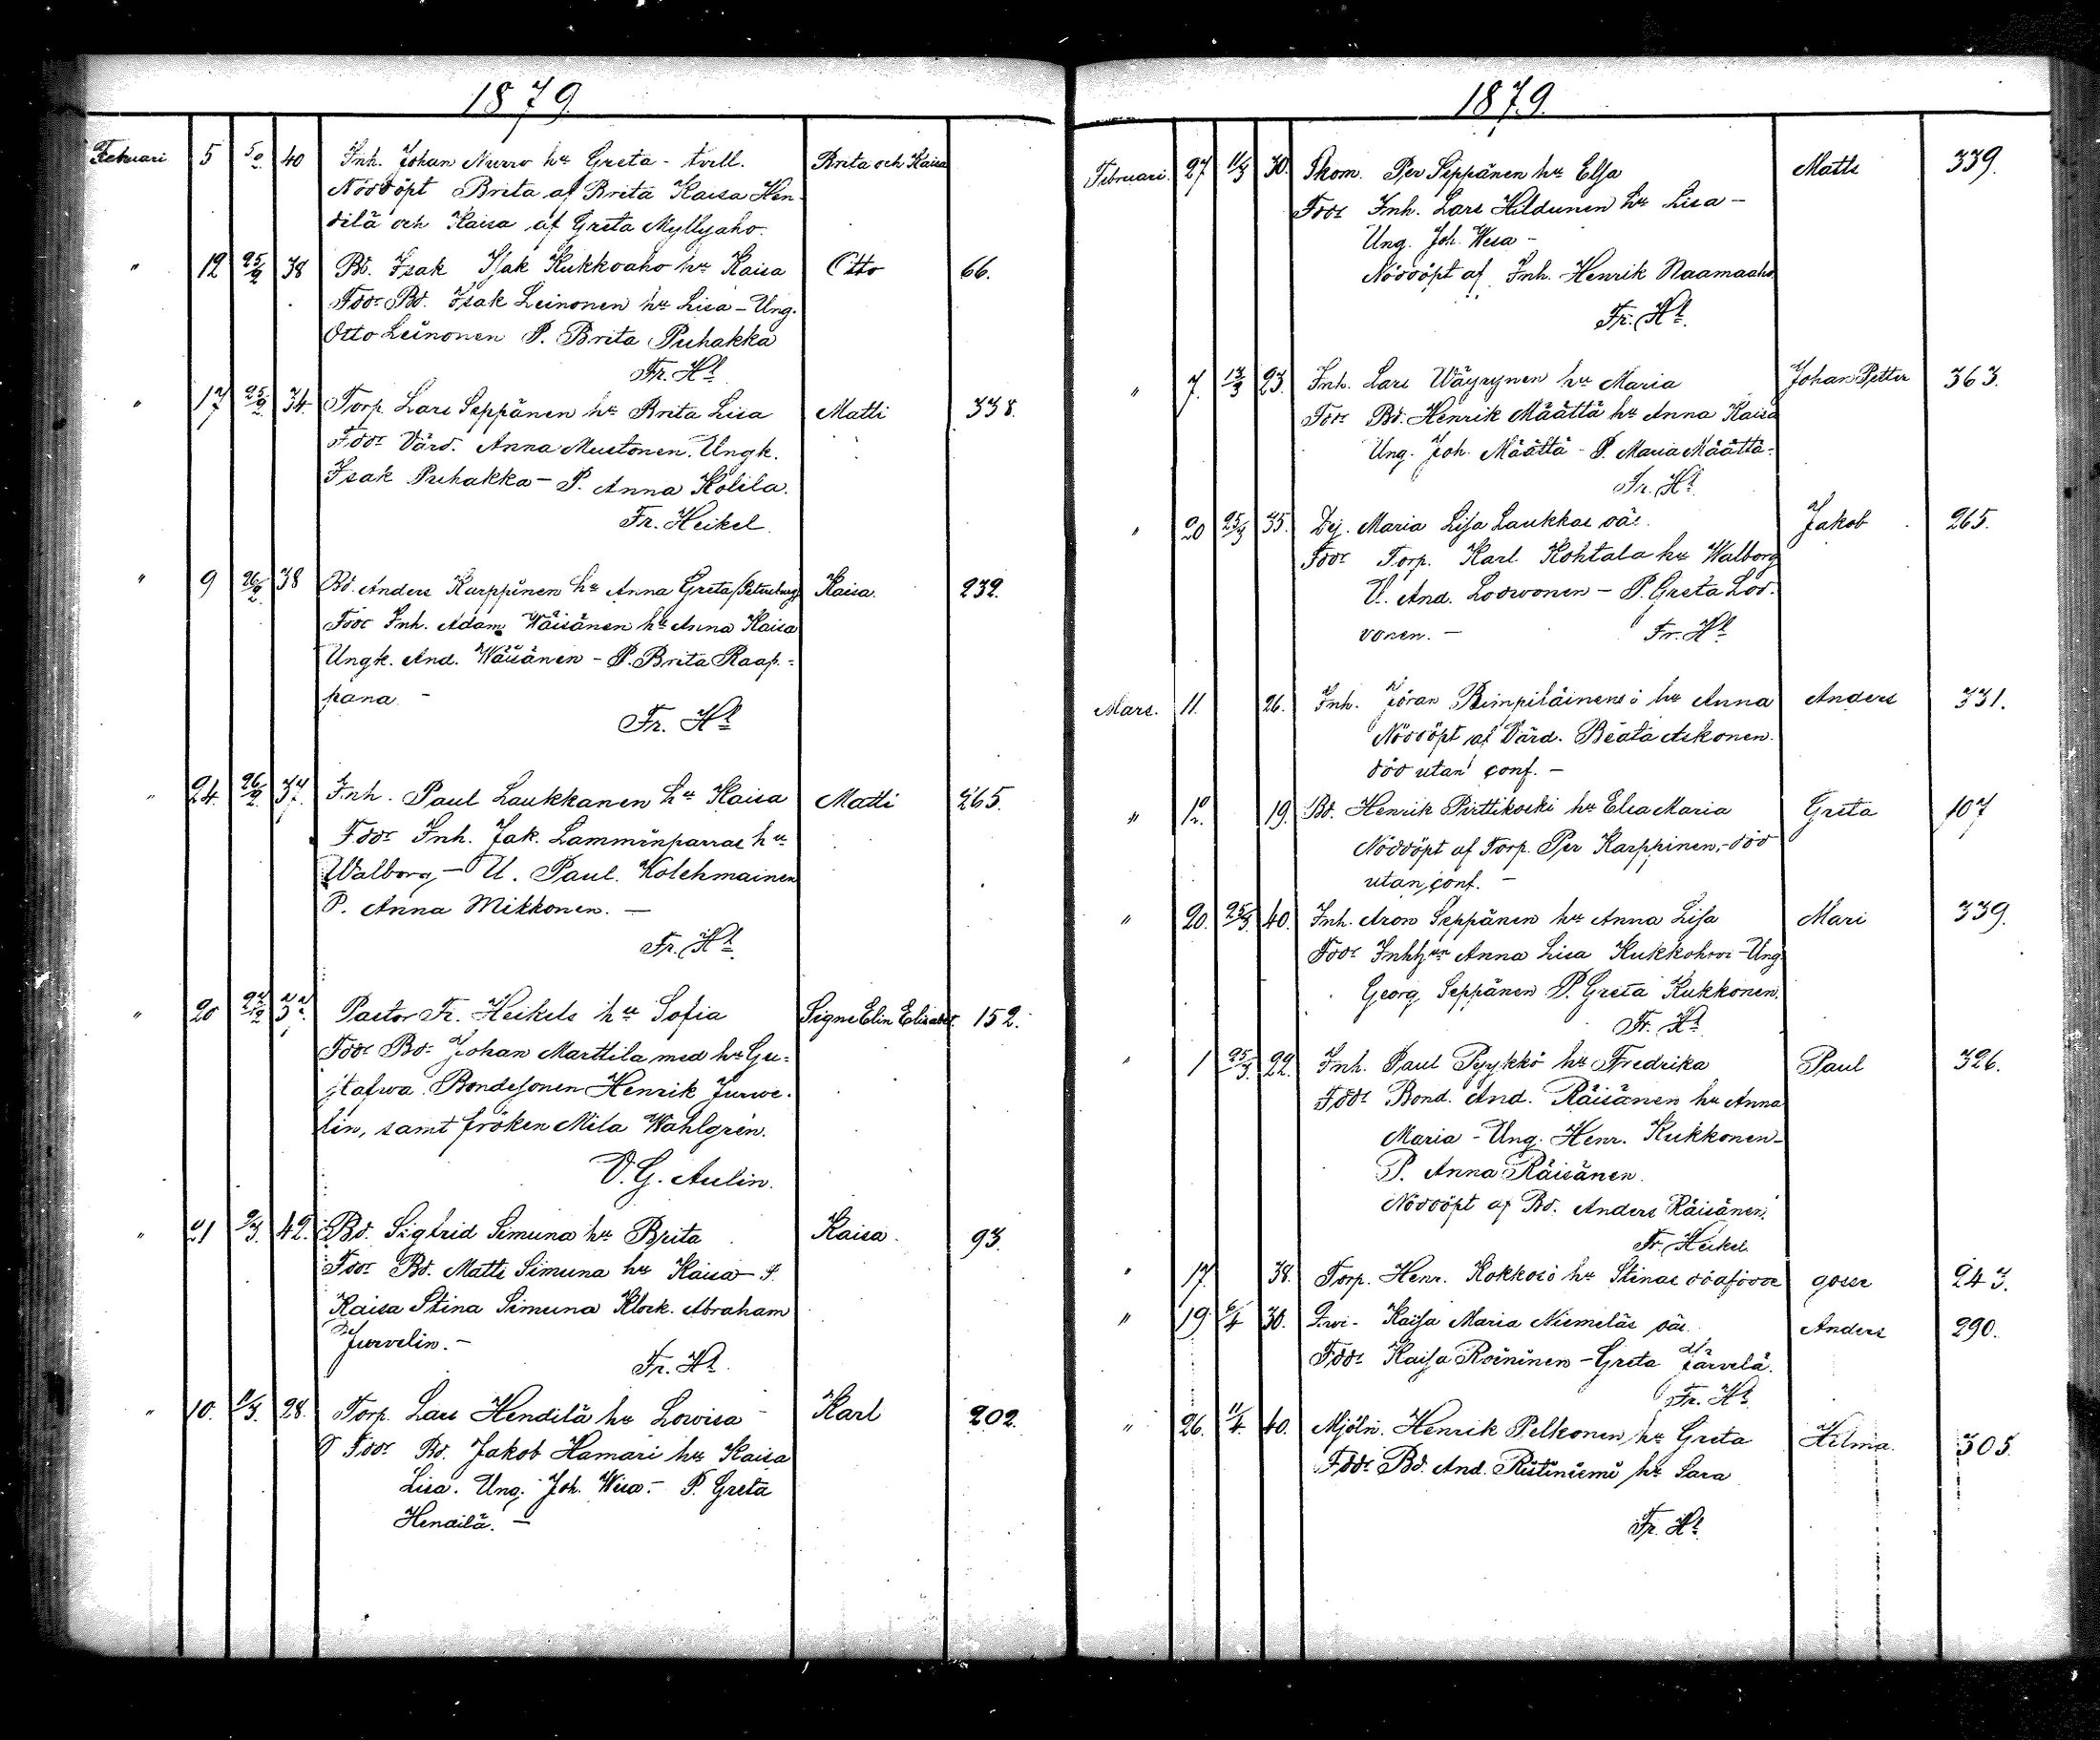 1879.
Februari 5 5/2 40 Inh. Johan Nurro hu Greta - tvill. Brita och Kaisa
Nöddöpt Brita af Brita Kaisa Hen-
dilä och Kaisa af Greta Myllyaho.
" 12 25/2 38 Bd. Isak Isak Kukkoaho hu Kaisa Otto 66.
Fddr Bd. Isak Leinonen hu Lisa - Ung.
Otto Leinonen P. Brita Puhakka
Fr. Hl
" 17 25/2 34 Torp. Lars Seppänen hu Brita Lisa Matti 338.
Fddr Värd. Anna Mustonen. Ungk.
Isak Puhakka - P. Anna Kolila.
Fr. Heikel.
" 9 26/2 38 Bd. Anders Karppinen hu Anna Greta (Petersburg) Kaisa. 232.
Fddr Inh. Adam Wäisänen hu Anna Kaisa
Ungk. And. Wäisänen - P. Brita Raap-
pana -
Fr. Hl
" 24. 26/2 37. Inh. Paul Laukkanen hu Kaisa Matti 265.
Fddr Inh. Jak. Lamminparras hu
Walborg - U. Paul. Kolehmainen
P. Anna Mikkonen. -
Fr. Hl
" 20 Pastor Fr. Heikels hu Sofia Signe Elin Elisabet. 152.
Fddr Bd: Johan Marttila med hu Gu-
stafva. Bondesonen Henrik Jurve-
lin, samt fröken Mila Wahlgren.
V. G. Aulin.
" 21 2/3. 42. Bd. Sigfrid Simuna hu Brita Kaisa. 93.
Fddr Bd. Matti Simuna hu Kaisa - P.
Kaisa Stina Simuna Klock. Abraham
Jurvelin. -
Fr. Hl.
" 10. 11/3. 28. Torp. Lars Hendilä hu Lovisa Karl 202.
Fddr Bd. Jakob Hamari hu Kaisa
Lisa. Ung. Joh. Wisa. - P. Greta
Hendilä. -
1879.
Februari. 27 11/3 30. Skom. Per Seppänen hu Elsa Matti 339.
Fddr Inh. Lars Hildunen hu Lisa -
Ung. Joh. Wesa -
Nöddöpt af Inh. Henrik Naamaaho
Fr. Hl.
" 7. 12/3 23. Inh. Lars Wäyrynen hu Maria Johan Petter 363.
Fddr Bd. Henrik Määttä hu Anna Kaisa
Ung. Joh. Määttä - P. Maria Määttä.
Fr. Hl
" 20 25/3 35. Dej. Maria Lisa Laukkas oäs. Jakob 265.
Fddr Torp. Karl Kohtala hu Walborg
U. And. Lodwonen - P. Greta Lod-
vonen. - Fr. Hl
Mars. 11. 26. Inh. Jöran Pimpiläinens hu Anna Anders 331.
Nöddöpt af Värd. Beata Askonen.
död utan conf. -
" 12. 19. Bd. Henrik Pirttikoski hu Elsa Maria Greta 107
Nöddöpt af Torp. Per Karppinen, - död
utan conf. -
" 20. 25/3. 40. Inh. Aron Seppänen hu Anna Lisa Mari 339.
Fddr Inhhun Anna Lisa Ung.
Georg Seppänen P. Greta Kukkonen.
Fr. Hl
" 1 25/3. 22. Inh. Paul Pyykkö hu Fredrika Paul 326.
Fddr Bond. And. Räisänen hu Anna
Maria - Ung. Henr. Kukkonen -
P. Anna Räisänen.
Nöddöpt af Bd. Anders Räisänen.
Fr. Heikel.
" 17. 38. Torp. Henr. Kokkos hu Stinas dödfödde gosse 243.
" 19 6/4 30. Kaisa Maria Niemeläs oäs. Anders 290.
Fddr Kaisa Roininen - Greta Järvelä.
Fr. Hl
" 26. 11/4. 40. Mjöln. Henrik Pelkonen hu Greta Hilma. 305.
Fddr Bd. And. Ristiniemi hu Sara
Fr. Hl